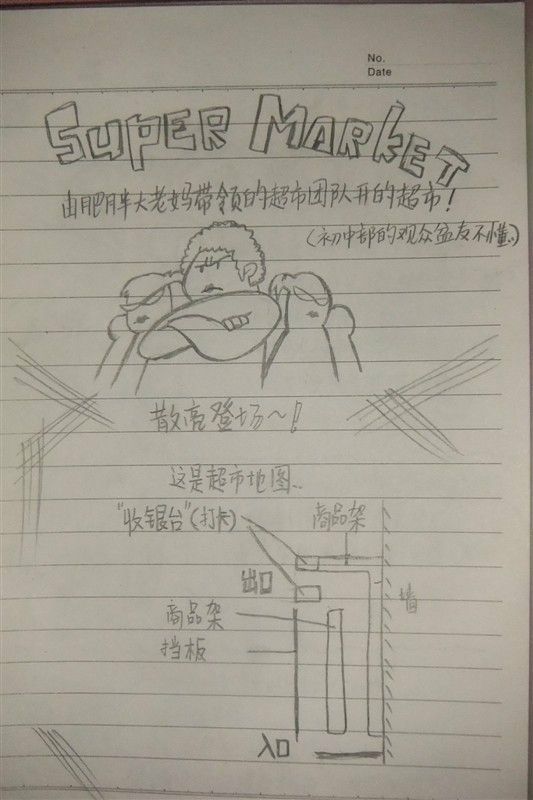 No.
Date
SUPER MARKET
由肥胖大老妈带领的超市团队开的超市！
（初中部的观众盆友不懂..）
散亮登场～！
这是超市地图..
"收银台"(打卡) 商品架
出口
墙
商品架
挡板
入口